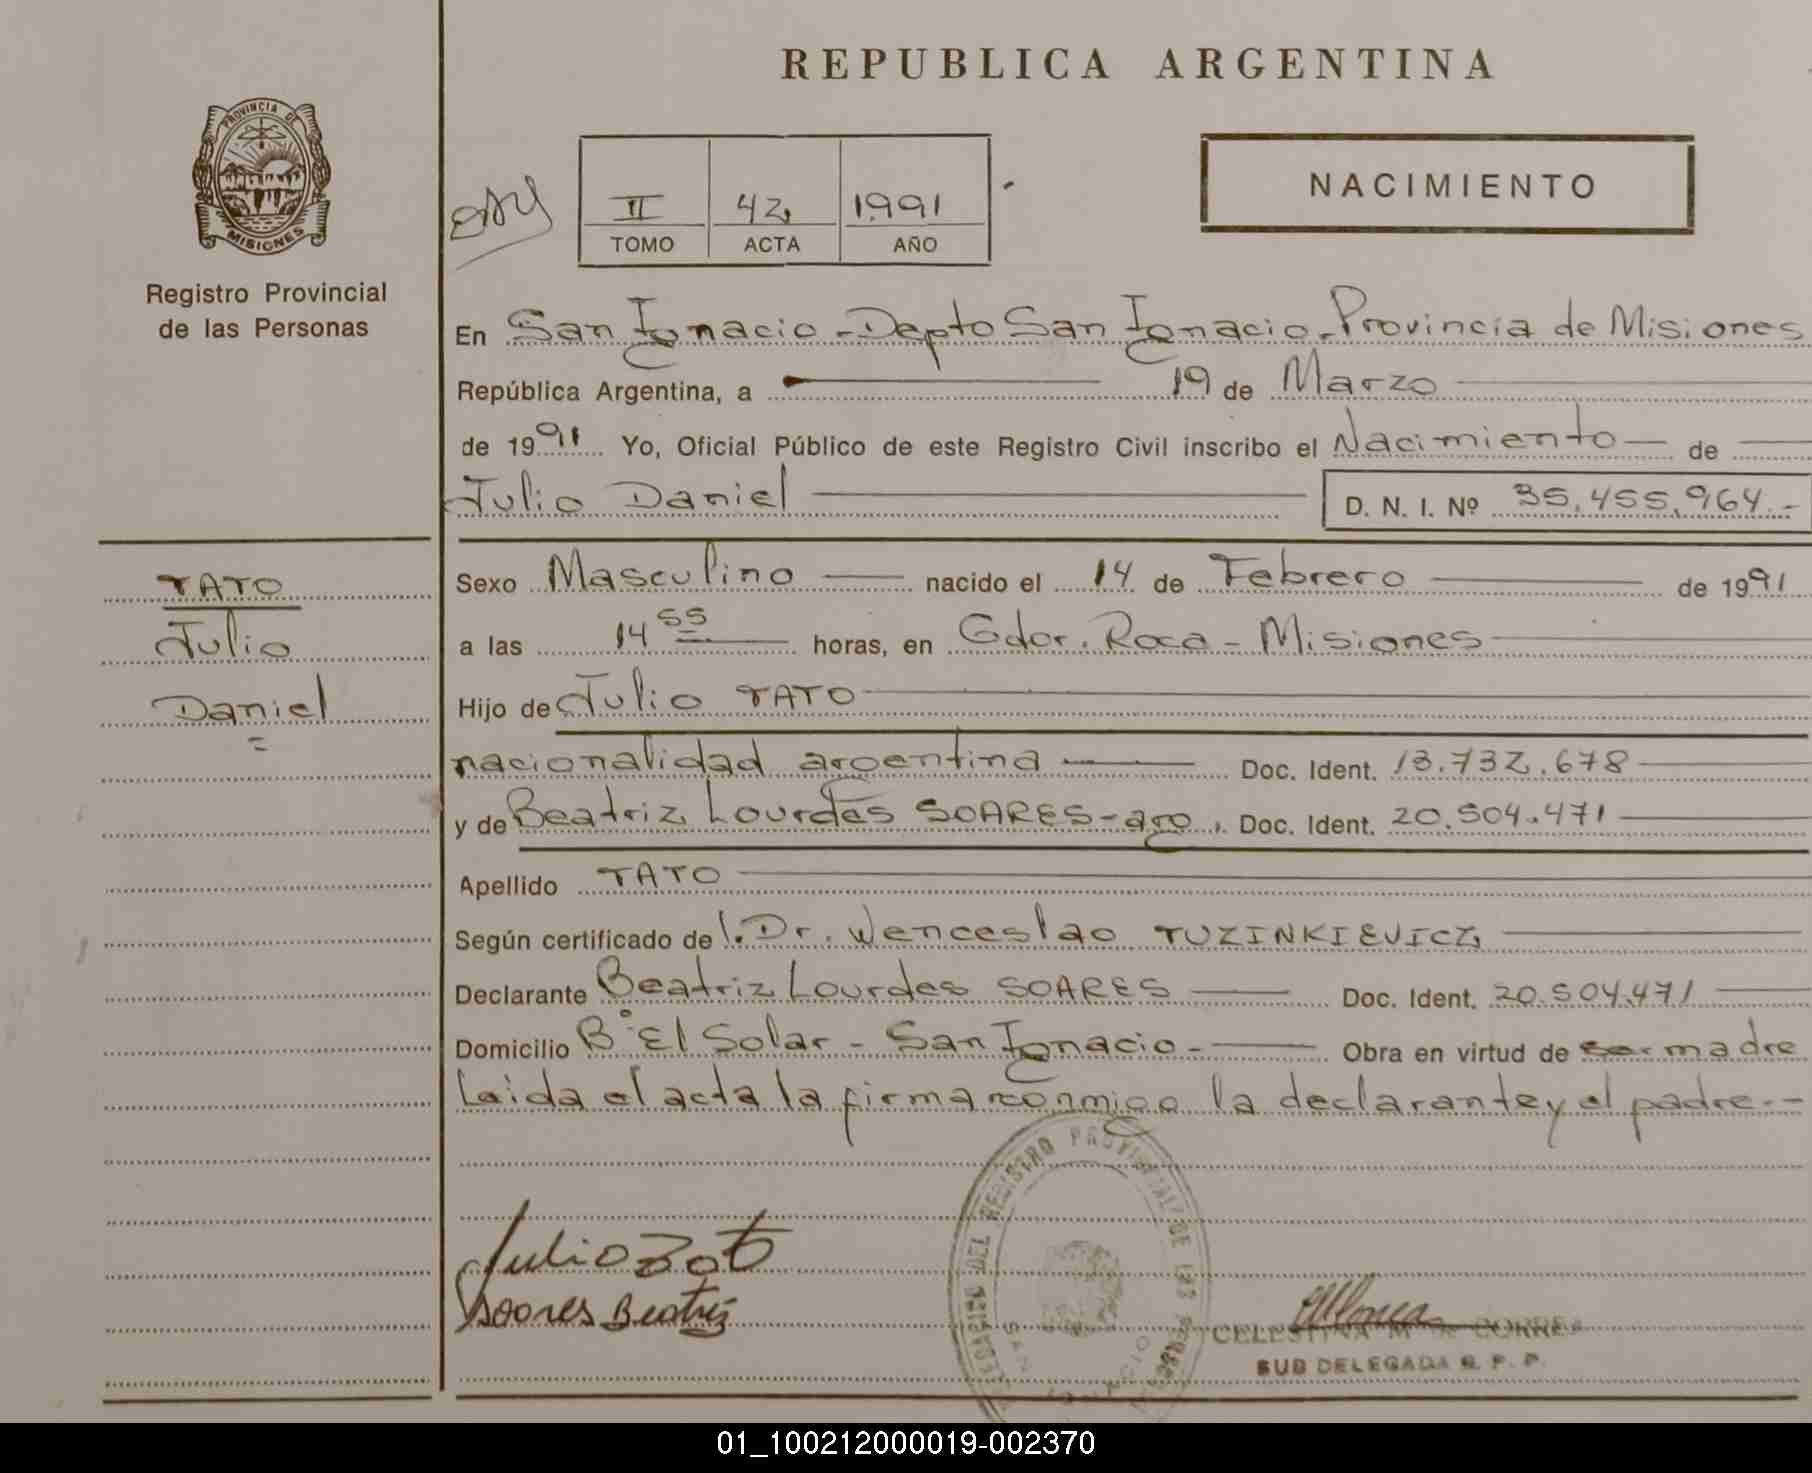 REPUBLICA ARGENTINA
PROVINCIA DE MISIONES
Registro Provincial
de las Personas
NACIMIENTO
II 42 1991
TOMO ACTA AÑO
En San Ignacio - Depto San Ignacio - Provincia de Misiones
República Argentina, a 19 de Marzo
de 1991 Yo, Oficial Público de este Registro Civil inscribo el Nacimiento de
Julio Daniel D. N. I. Nº 35.455.964.-
TATO
Julio
Daniel
Sexo Masculino nacido el 14 de Febrero de 1991
a las 14 55 horas, en Gdor. Roca - Misiones
Hijo de Julio TATO
nacionalidad argentina Doc. Ident. 13.732.678
y de Beatriz Lourdes SOARES - arg. Doc. Ident. 20.504.471
Apellido TATO
Según certificado del. Dr. Wenceslao TUZINKIEVICZ
Declarante Beatriz Lourdes SOARES Doc. Ident. 20.504.471
Domicilio Bº El Solar - San Ignacio - Obra en virtud de ser madre
Leida el acta la firman conmigo la declarante y el padre.-
Julio Tato
Soares Beatriz
REGISTRO PROVINCIAL DE LAS
SAN IGNACIO
CELESTINA M. de CORREA
SUB DELEGADA R. P. P.
01_100212000019-002370